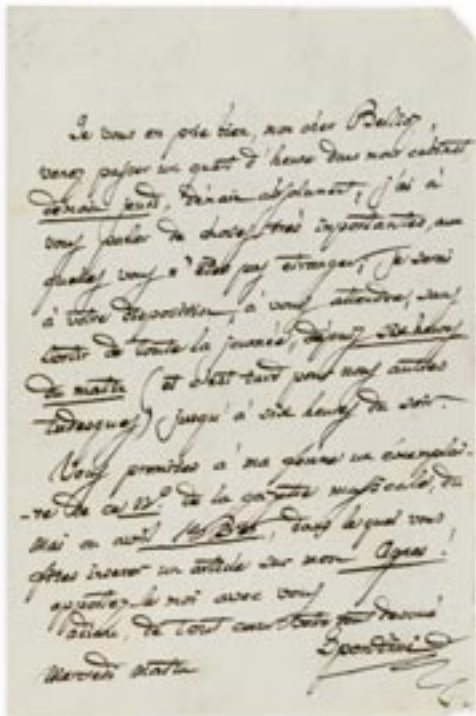 Je vous en prie bien, mon cher Berlioz,
venez passer un quart d'heure dans mon cabinet
demain jeudi, demain absolument; j'ai à
vous parler de choses très importantes, aux
quelles vous n'êtes pas étranger; je serai
à votre disposition, à vous attendre, sans
sortir de toute la journée, depuis six heures
du matin (et c'est tard pour nous autres
tudesques) jusqu'à six heures du soir.
Vous promîtes à ma femme un exemplai-
-re de ce n.º de la gazette musicale, du
mai ou avril, dans lequel vous
fîtes insérer un article sur mon Agnes!
apportez-le moi avec vous
adieu, de tout cœur votre dévoué
Spontini
mercredi matin